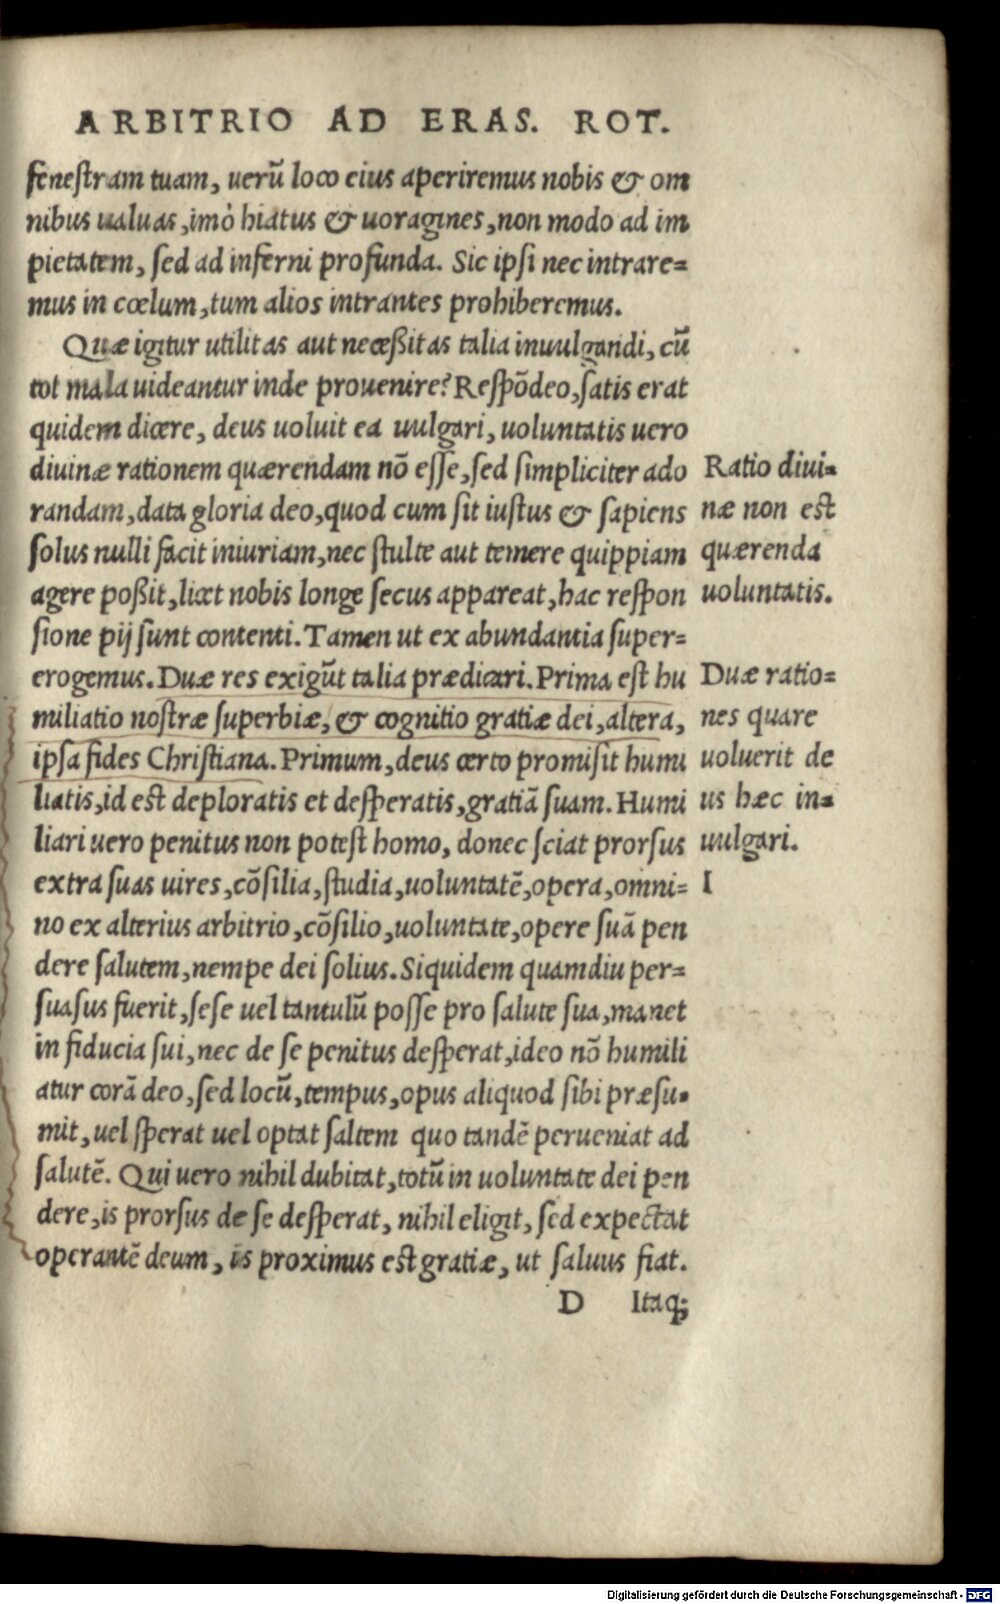 ARBITRIO AD ERAS. ROT.
fenestram tuam, uerũ loco eius aperiremus nobis & om
nibus ualuas, imò hiatus & uoragines, non modo ad im
pietatem, sed ad inferni profunda. Sic ipsi nec intrare=
mus in cœlum, tum alios intrantes prohiberemus.
Quæ igitur utilitas aut necessitas talia inuulgandi, cũ
tot mala uideantur inde prouenire? Respõdeo, satis erat
quidem dicere, deus uoluit ea uulgari, uoluntatis uero
diuinæ rationem quærendam nõ esse, sed simpliciter ado
randam, data gloria deo, quod cum sit iustus & sapiens
solus nulli facit iniuriam, nec stulte aut temere quippiam
agere possit, licet nobis longe secus appareat, hac respon
sione pij sunt contenti. Tamen ut ex abundantia super=
erogemus. Duæ res exigũt talia prædicari. Prima est hu
miliatio nostræ superbiæ, & cognitio gratiæ dei, altera,
ipsa fides Christiana. Primum, deus certo promisit humi
liatis, id est deploratis et desperatis, gratiã suam. Humi
liari uero penitus non potest homo, donec sciat prorsus
extra suas uires, cõsilia, studia, uoluntatẽ, opera, omni=
no ex alterius arbitrio, cõsilio, uoluntate, opere suã pen
dere salutem, nempe dei solius. Siquidem quamdiu per=
suasus fuerit, sese uel tantulũ posse pro salute sua, manet
in fiducia sui, nec de se penitus desperat, ideo nõ humili
atur corã deo, sed locũ, tempus, opus aliquod sibi præsu=
mit, uel sperat uel optat saltem quo tandẽ perueniat ad
salutẽ. Qui uero nihil dubitat, totũ in uoluntate dei pen
dere, is prorsus de se desperat, nihil eligit, sed expectat
operantẽ deum, is proximus est gratiæ, ut saluus fiat.
D Itaq;
Ratio diui=
næ non est
quærenda
uoluntatis.
Duæ ratio=
nes quare
uoluerit de
us hæc in=
uulgari.
I
Digitalisierung gefördert durch die Deutsche Forschungsgemeinschaft - DFG